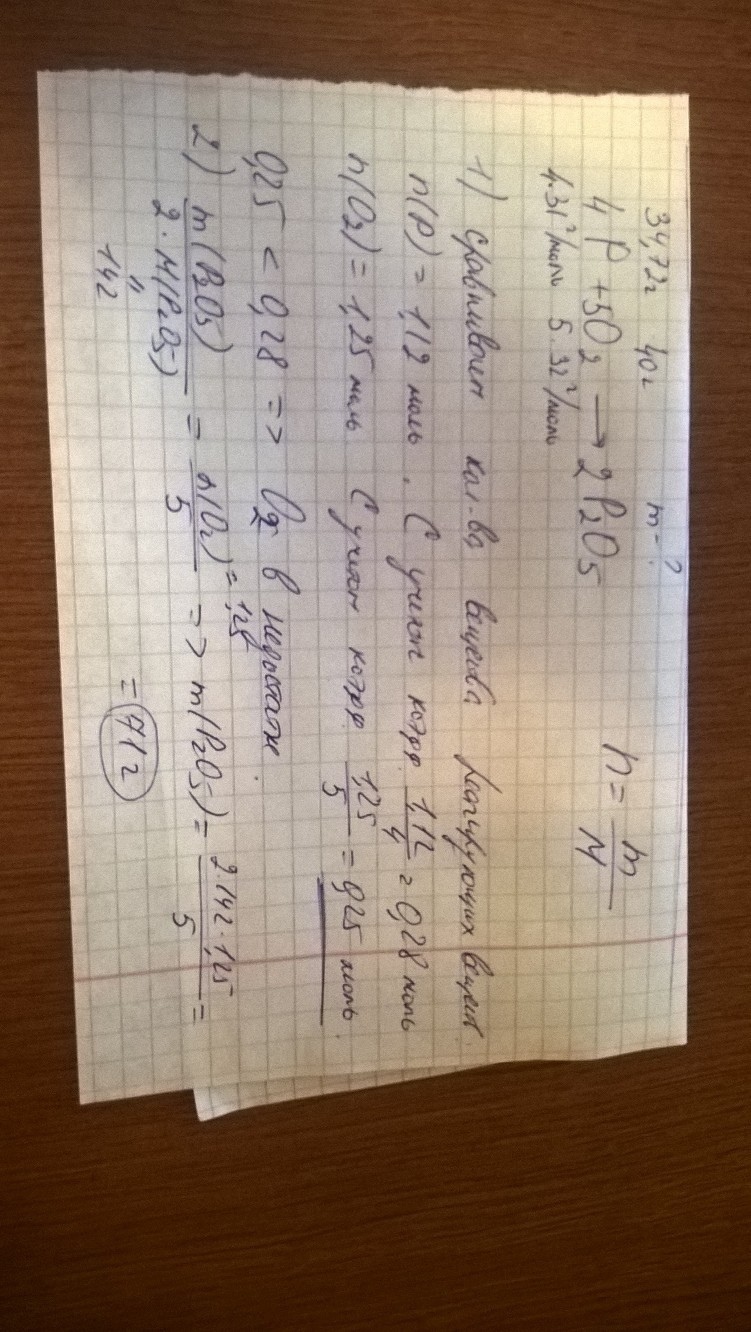 34,72г 40г m=?
4P + 5O2 → 2P2O5
4·31 г/моль 5·32 г/моль
n = m/M
1) сравниваем кол-ва вещества реагирующих вещест.
n(P) = 1,12 моль. С учетом коэфф. 1,12/4 = 0,28 моль
n(O2) = 1,25 моль С учетом коэфф. 1,25/5 = 0,25 моль.
0,25 < 0,28 => O2 в недостатке.
2) m(P2O5)/2·M(P2O5) = n(O2)/5 = 1,25 => m(P2O5) = 2·142·1,25/5 =
" 142
= 71г